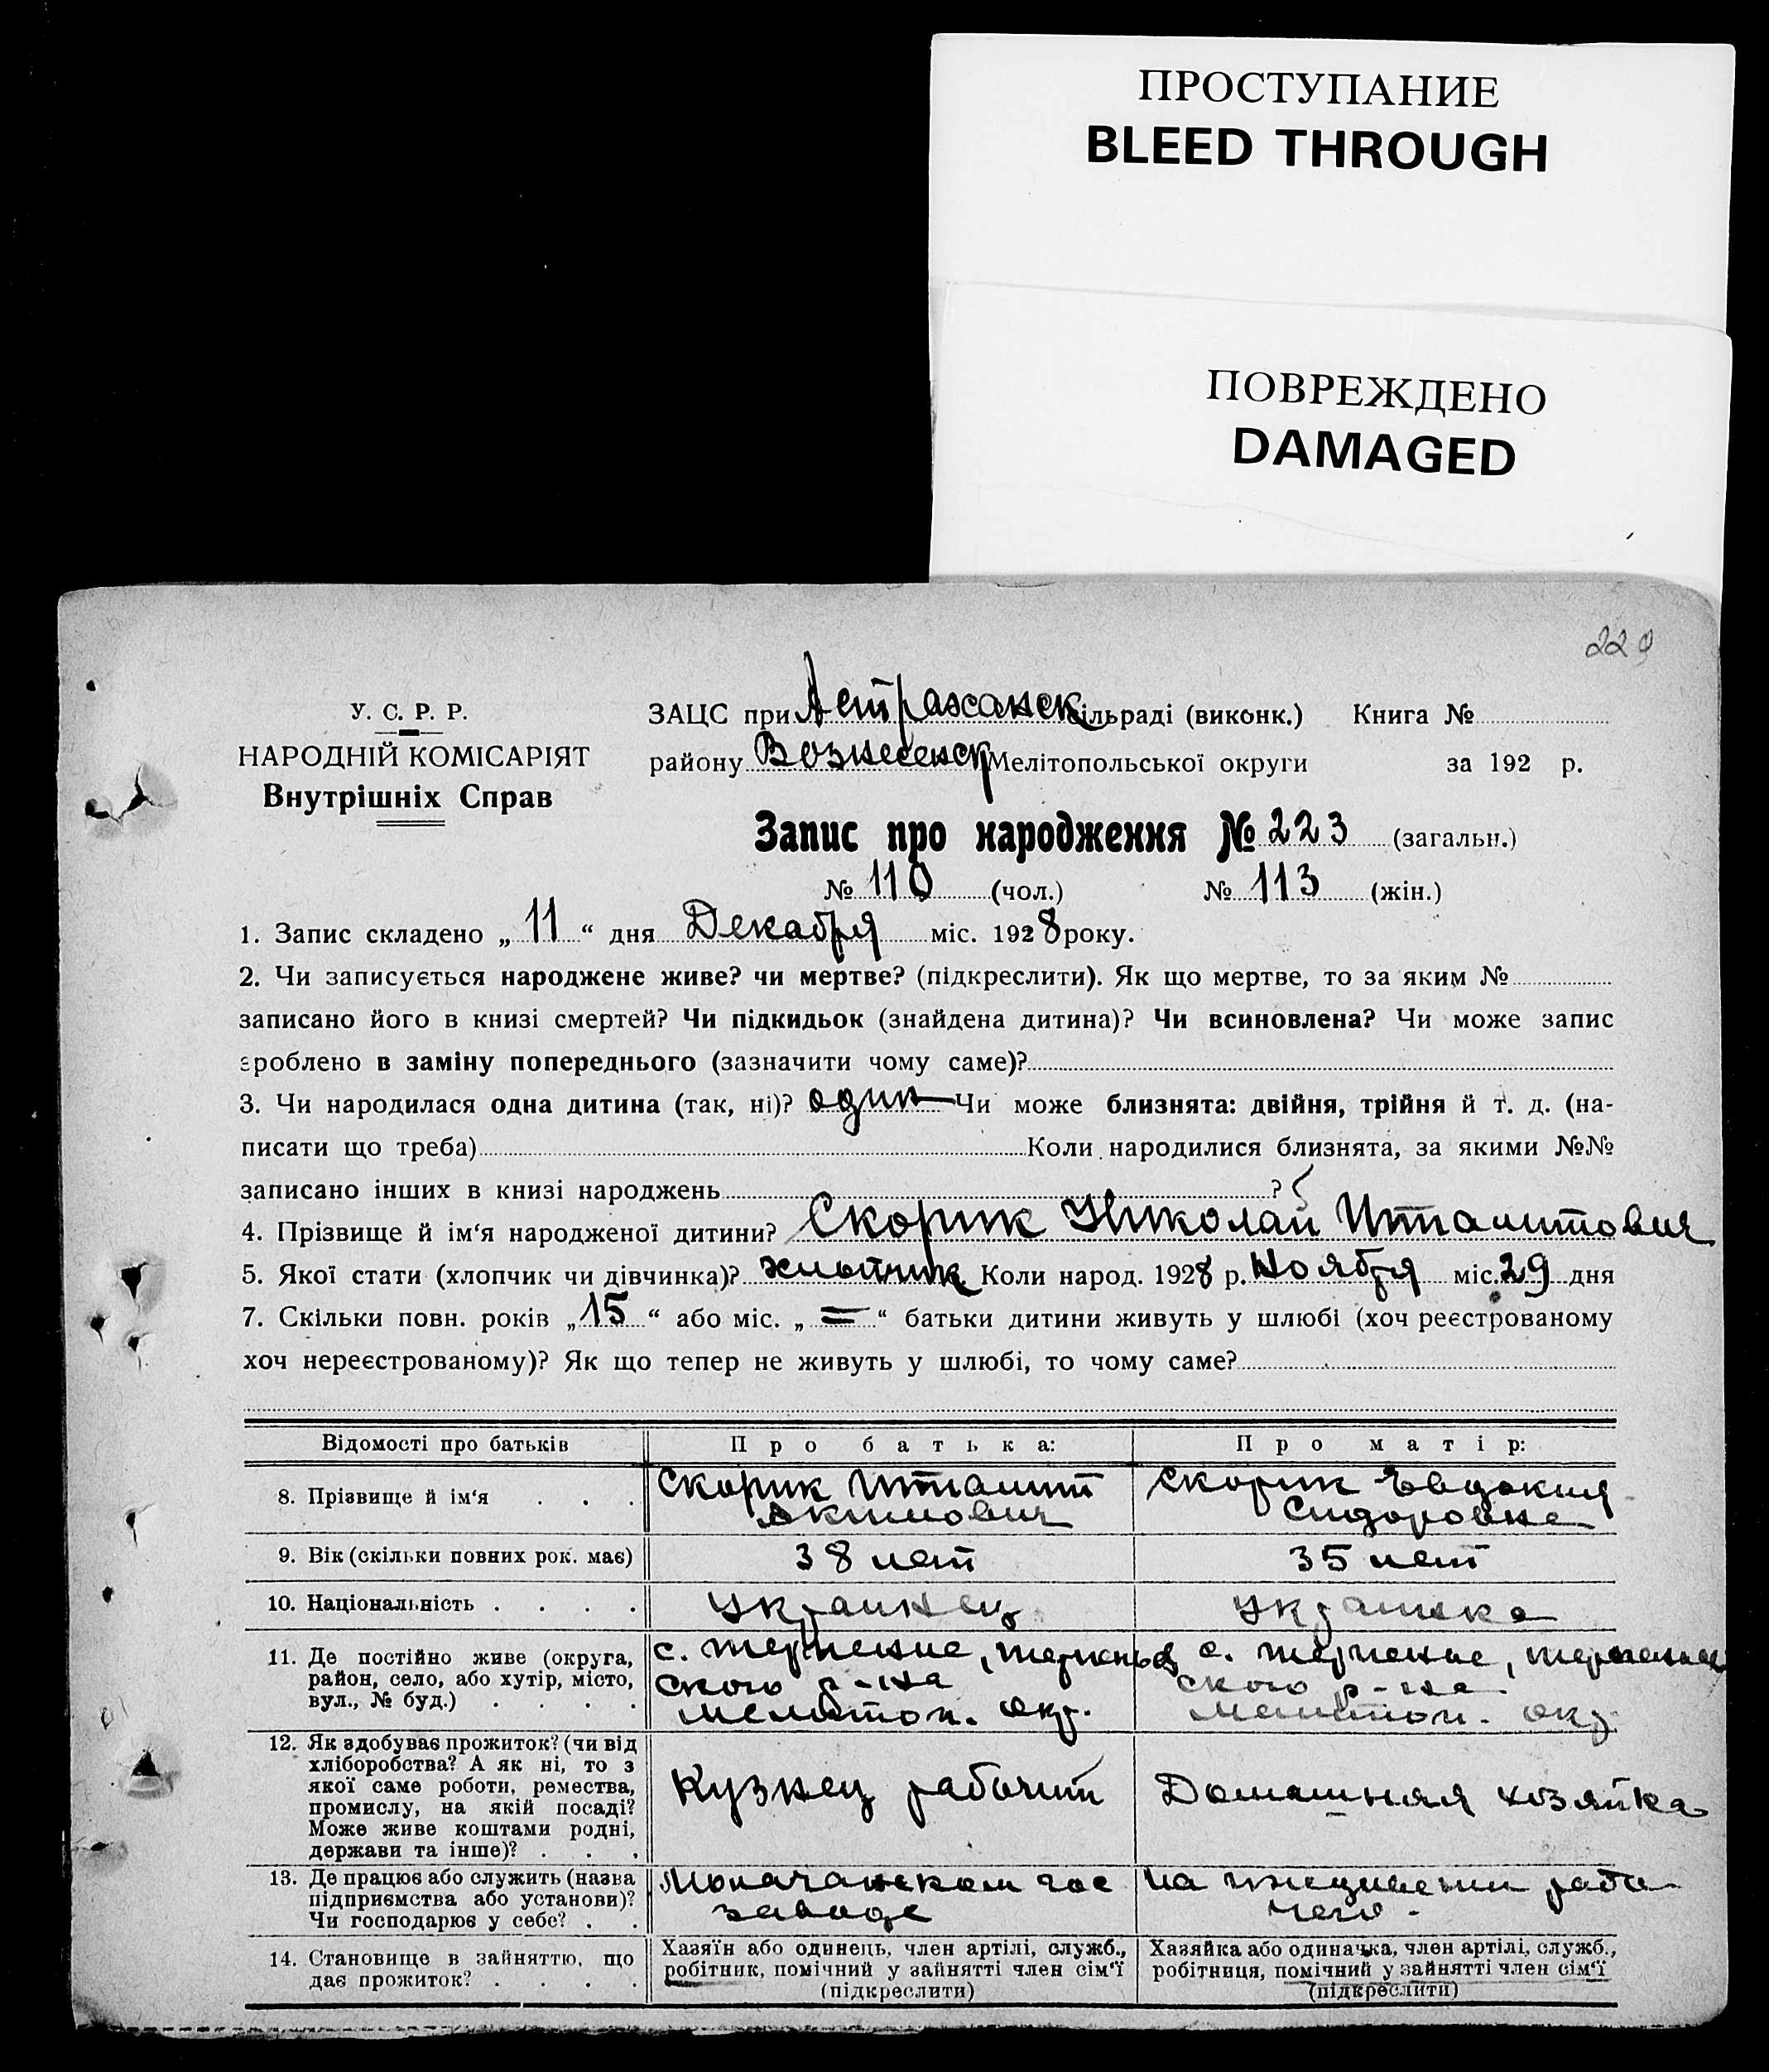 ПРОСТУПАНИЕ
BLEED THROUGH
ПОВРЕЖДЕНО
DAMAGED
229
У. С. Р. Р.
НАРОДНІЙ КОМІСАРІЯТ
Внутрішніх Справ
ЗАЦС при Астраханск сільраді (виконк.) Книга №
району Вознесенск Мелітопольської округи за 192 р.
Запис про народження № 223 (загальн.)
№ 110 (чол.) № 113 (жін.)
1. Запис складено „ 11 “ дня Декабря міс. 1928 року.
2. Чи записується народжене живе? чи мертве? (підкреслити). Як що мертве, то за яким №
записано його в книзі смертей? Чи підкидьок (знайдена дитина)? Чи всиновлена? Чи може запис
зроблено в заміну попереднього (зазначити чому саме)?
3. Чи народилася одна дитина (так, ні)? один Чи може близнята: двійня, трійня й т. д. (на-
писати що треба) Коли народилися близнята, за якими №№
записано інших в книзі народжень ?
4. Прізвище й ім‘я народженої дитини? Скорик Николай Ипталитович
5. Якої стати (хлопчик чи дівчинка)? хлопчик Коли народ. 1928 р. Ноября міс. 29 дня
7. Скільки повн. років „ 15 “ або міс. „ = “ батьки дитини живуть у шлюбі (хоч реєстрованому
хоч нереєстрованому)? Як що тепер не живуть у шлюбі, то чому саме?
Відомості про батьків Про батька: Про матір:
8. Прізвище й ім‘я . . . Скорик Ипталит Скорик Евдокия
Акимович Сидоровна
9. Вік (скільки повних рок. має) 38 лет 35 лет
10. Національність . . . . Украинец Украинка
11. Де постійно живе (округа, район, село, або хутір, місто, вул., № буд.) . . . .
с. Терпение, Терпеньев
ского р-на
Мелитоп. окр.
с. Терпение, Терпеньев
ского р-на
Мелитоп. окр.
12. Як здобуває прожиток? (чи від
хліборобства? А як ні, то з
якої саме роботи, ремества,
промислу, на якій посаді?
Може живе коштами родні,
держави та інше)? . . .
Кузнец рабочий Домашняя хозяйка
13. Де працює або служить (назва
підприємства або установи)?
Чи господарює у себе? . .
гос
заводе
На иждивении рабо
чего.
14. Становище в зайняттю, що
дає прожиток? . . . .
Хазяїн або одинець, член артілі, служб.,
робітник, помічний у зайнятті член сім‘ї
(підкреслити)
Хазяйка або одиначка, член артілі, служб.,
робітниця, помічний у зайнятті член сім‘ї
(підкреслити)